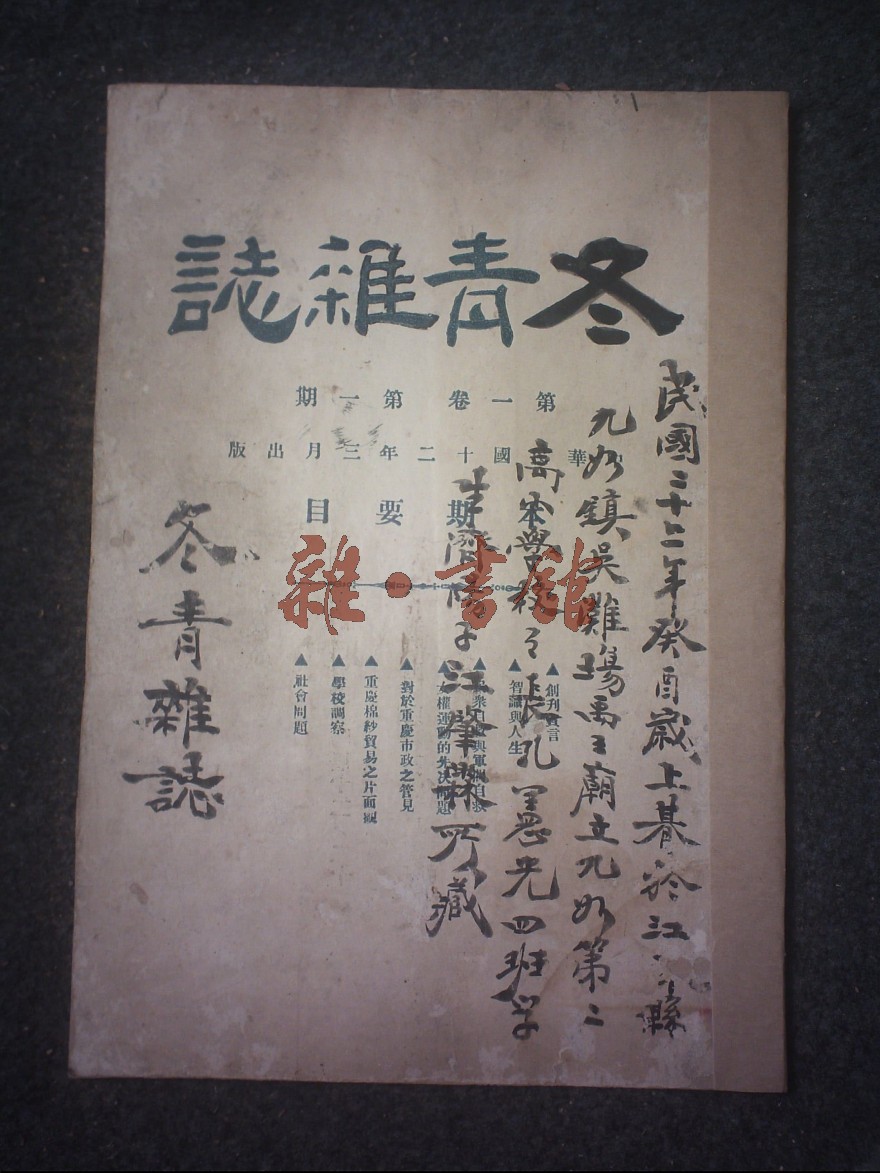 冬青雜誌
第一卷 第一期
華國十二年三月出版
本期要目
▲創刊宣言
▲智識與人生
▲女權運動的先決問題
▲對於重慶市政之管見
▲重慶棉紗貿易之片面觀
▲學校調察
▲社會問題
民國三十二年癸酉歲上暮於江縣
九如鎮吳灘場禹王廟立九如第二
高小學校長孔憲光四班學
生江肇所藏
冬青雜誌
雜·書館